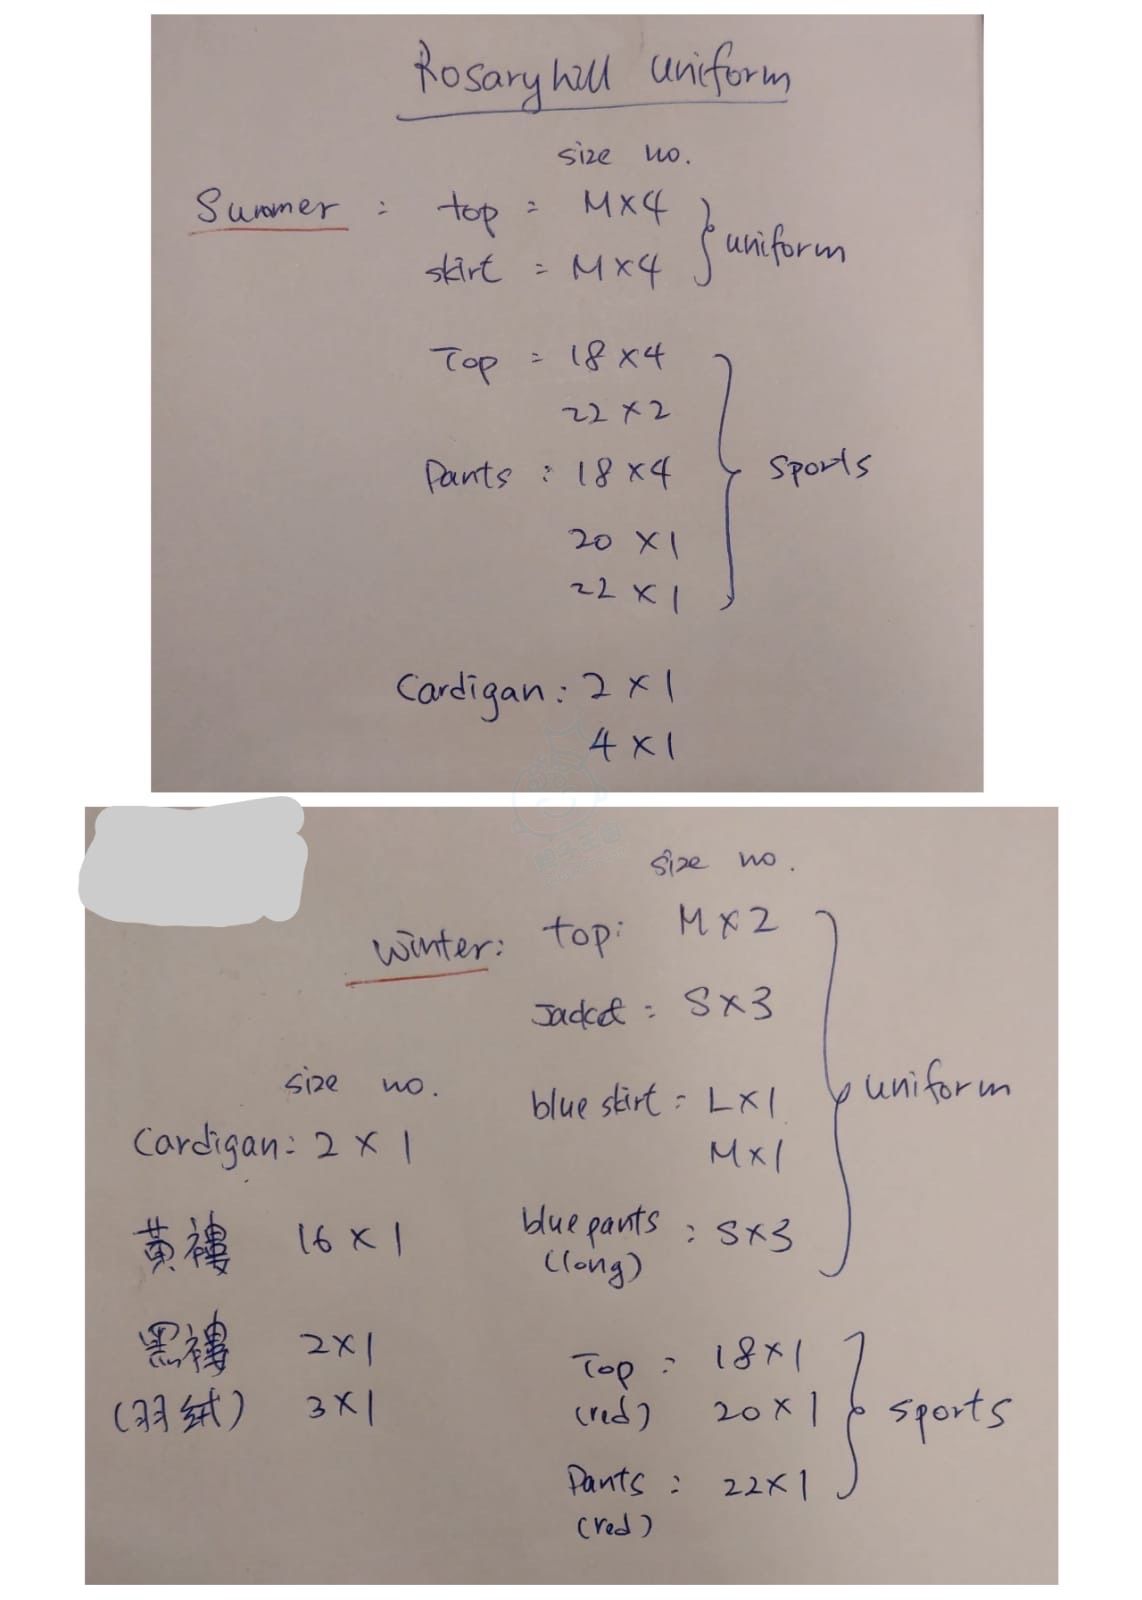 Rosaryhill uniform
size no.
Summer : top = M×4
skirt = M×4
} uniform
Top = 18×4
22×2
Pants : 18×4
20×1
22×1
} sports
Cardigan : 2×1
4×1
size no.
Winter : top: M×2
Jacket = S×3
blue skirt = L×1
M×1
blue pants : S×3
(long)
} uniform
Top = 18×1
(red) 20×1
Pants : 22×1
(red)
} sports
size no.
Cardigan = 2×1
黃褸 16×1
黑褸 2×1
(羽絨) 3×1